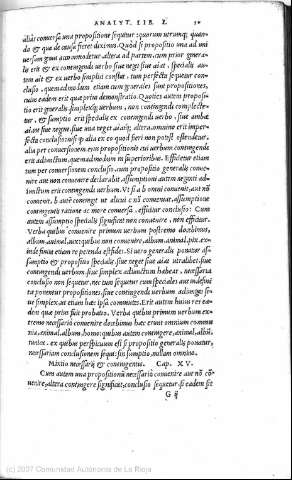 ANALYT. LIB. I.
aliàs conuersa una propositione sequetur: quorum utrumq; quando & qua de causa fieret diximus. Quòd si propositio una ad uni
uersum quid accommodetur, altera ad partem, cum prior generalis erit & ex contingendi uerbo siue neget siue aiat, specialis autem ait & ex uerbo simplici constat, tum perfecta sequetur conclusio, quemadmodum etiam cum generales sint propositiones,
cuius eadem erit quæ prius demonstratio. Quoties autem propositio erit generalis simplexq́; uerbum, non contingendi complectetur, & sumptio erit specialis ex contingendi uerbo, siue ambæ
aiant siue negent, siue una neget aiat q́;, altera, omnino erit imperfecta conclusio:
alia per conuersionem eius propositionis cui uerbum contingendi
erit adiunctum, quemadmodum in superioribus. Efficietur etiam
tum per conuersionem conclusio, cum propositio generalis conuenire aut non conuenire declarabit, assumptioni autem
contingendi uerbum
conclusio: Cum
autem assumptio specialis significat non conuenire, non efficitur.
Verba quibus conuenire primum uerbum postremo docebimus,
album, animal, nix: quibus non conuenire, album, animal, pix. ex
Si uero generalis ponatur assumptio & propositio specialis, siue neget siue aiat utralibet, siue
contingendi uerbum siue simplex adiunctum habeat, necessaria
conclusio non sequetur, nec tum sequetur cum speciales aut indefinitæ ponentur propositiones, siue contingendi uerbum adiungas siue simplex, aut etiam hæc ipsa commutes. Erit autem huius rei eadem quæ prius fuit probatio. Verba quibus primum uerbum extremo necessariò conuenire docebimus hæc erunt omnium communia, animal, album, homo: quibus autem contingere, animal, album,
uestis. ex quibus perspicuum est si propositio generalis ponatur,
necessariam conclusionem sequi: sin sumptio, nullam omnino.
Mixtio necessarij & contingentis. Cap. XV.
Cum autem una propositionum necessariò conuenire aut non conuenire, altera contingere significet, conclusio sequetur si eædem sit
G ij
(c) 2007 Comunidad Autónoma de La Rioja